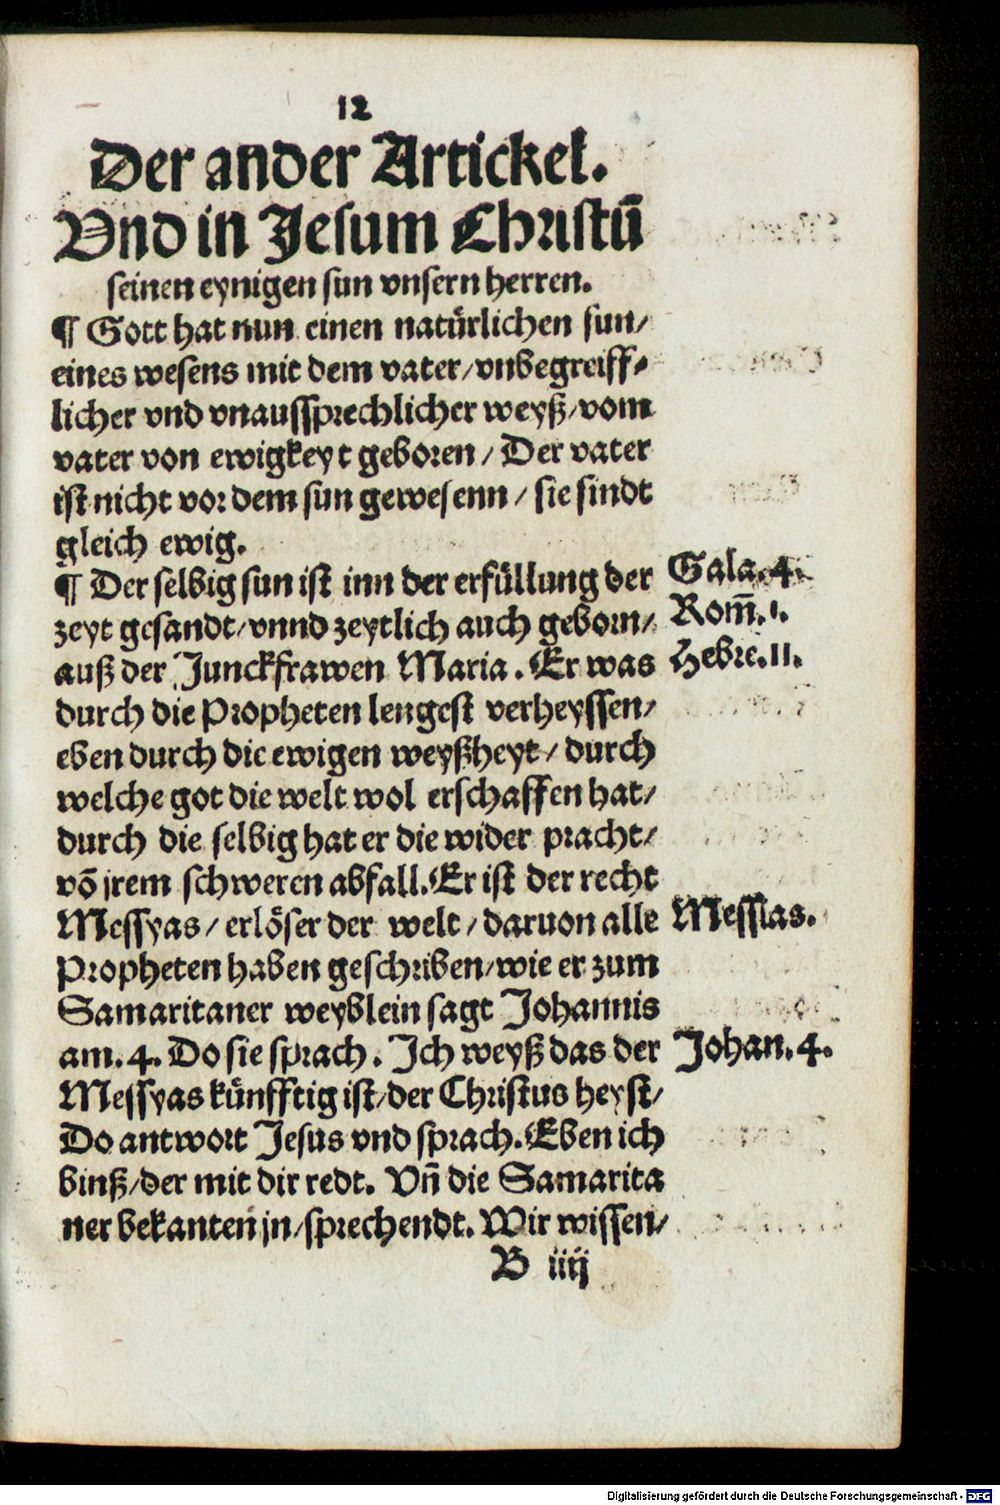 12
Der ander Artickel.
Vnd in Jesum Christū
seinen eynigen sun vnsern herren.
¶ Gott hat nun einen natürlichen sun/
eines wesens mit dem vater/vnbegreiff⸗
licher vnd vnaussprechlicher weyß/vom
vater von ewigkeyt geboren/ Der vater
ist nicht vor dem sun gewesenn/ sie sindt
gleich ewig.
¶ Der selbig sun ist inn der erfüllung der
Gala. 4.
zeyt gesandt/vnnd zeytlich auch geborn/
Rom̄. 1.
auß der Junckfrawen Maria. Er was
Hebre. 11.
durch die Propheten lengest verheyssen/
eben durch die ewigen weyßheyt/ durch
welche got die welt wol erschaffen hat/
durch die selbig hat er die wider pracht/
võ jrem schweren abfall. Er ist der recht
Messyas/ erlöser der welt/ daruon alle
Messias.
Propheten haben geschriben/wie er zum
Samaritaner weyblein sagt Johannis
am. 4. Do sie sprach. Ich weyß das der
Johan. 4.
Messyas künfftig ist/der Christus heyst/
Do antwort Jesus vnd sprach. Eben ich
binß/der mit dir redt. Vñ die Samarita
ner bekanten jn/sprechendt. Wir wissen/
B iiij
Digitalisierung gefördert durch die Deutsche Forschungsgemeinschaft - DFG